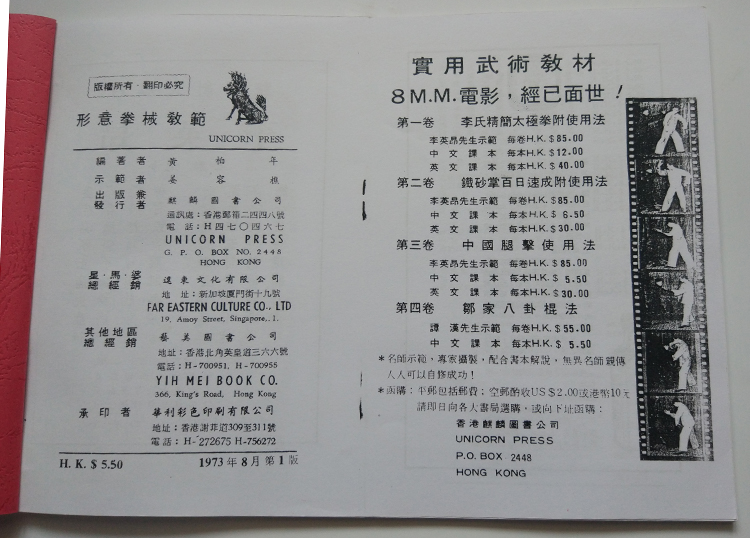 版權所有·翻印必究
形意拳械教範
UNICORN PRESS
編著者 黃柏年
示範者 姜容樵
出版兼發行者 麒麟圖書公司
通訊處：香港郵箱二四四八號
電話：H四七〇四六七
UNICORN PRESS
G. P. O. BOX NO. 2448
HONG KONG
星·馬·婆總經銷 遠東文化有限公司
地址：新加坡厦門街十九號
FAR EASTERN CULTURE CO., LTD
19, Amoy Street, Singapore,.1.
其他地區總經銷 藝美圖書公司
地址：香港北角英皇道三六六號
電話：H-700951, H-700955
YIH MEI BOOK CO.
366, King's Road, Hong Kong
承印者 華利彩色印刷有限公司
地址：香港謝菲道309至311號
電話：H-272675 H-756272
H. K. $ 5.50 1973年8月第1版
實用武術教材
8M.M.電影，經已面世！
第一卷 李氏精簡太極拳附使用法
李英昂先生示範 每卷H.K. $ 85.00
中文課本 每本H.K. $ 12.00
英文課本 每本H.K. $ 40.00
第二卷 鐵砂掌百日速成附使用法
李英昂先生示範 每卷H.K. $ 85.00
中文課本 每本H.K. $ 6.50
英文課本 每本H.K. $ 30.00
第三卷 中國腿擊使用法
李英昂先生示範 每卷H.K. $ 85.00
中文課本 每本H.K. $ 5.50
英文課本 每本H.K. $ 30.00
第四卷 鄒家八卦棍法
譚漢先生示範 每卷H.K. $ 55.00
中文課本 每本H.K. $ 5.50
*名師示範，專家攝製，配合書本解說，無異名師親傳
人人可以自修成功！
*函購：平郵包括郵費；空郵酌收US $ 2.00或港幣10元
請即日向各大書局選購，或向下址函購：
香港麒麟圖書公司
UNICORN PRESS
P.O. BOX 2448
HONG KONG